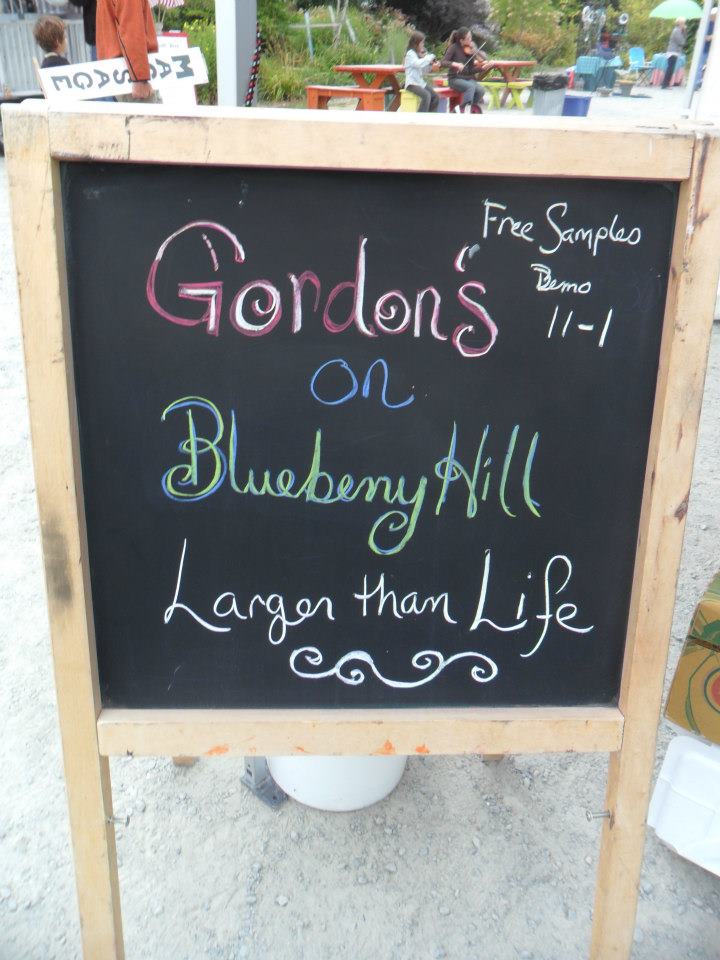 MASSAGE
Free Samples
Demo
11-1
Gordon's
on
Blueberry Hill
Larger than Life